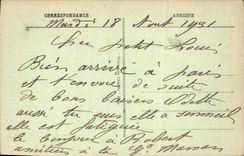 CORRESPONDANCE ADRESSE
Mardi 18 Aout 1931
Cher petit Loui
Bien arrivé à paris
et t'envoie de suite
de bons baisers Odette
aussi tu sais elle a sommeil
elle est fatiguée
le bonjour à Robert
amitiés à la Gd Maman